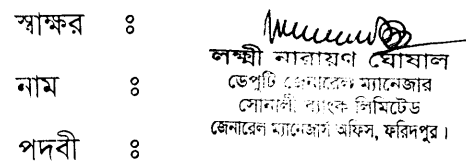 স্বাক্ষর ঃ
লক্ষ্মী নারায়ণ ঘোষাল
নাম ঃ ডেপুটি জেনারেল ম্যানেজার
সোনালী ব্যাংক লিমিটেড
জেনারেল ম্যানেজার্স অফিস, ফরিদপুর।
পদবী ঃ